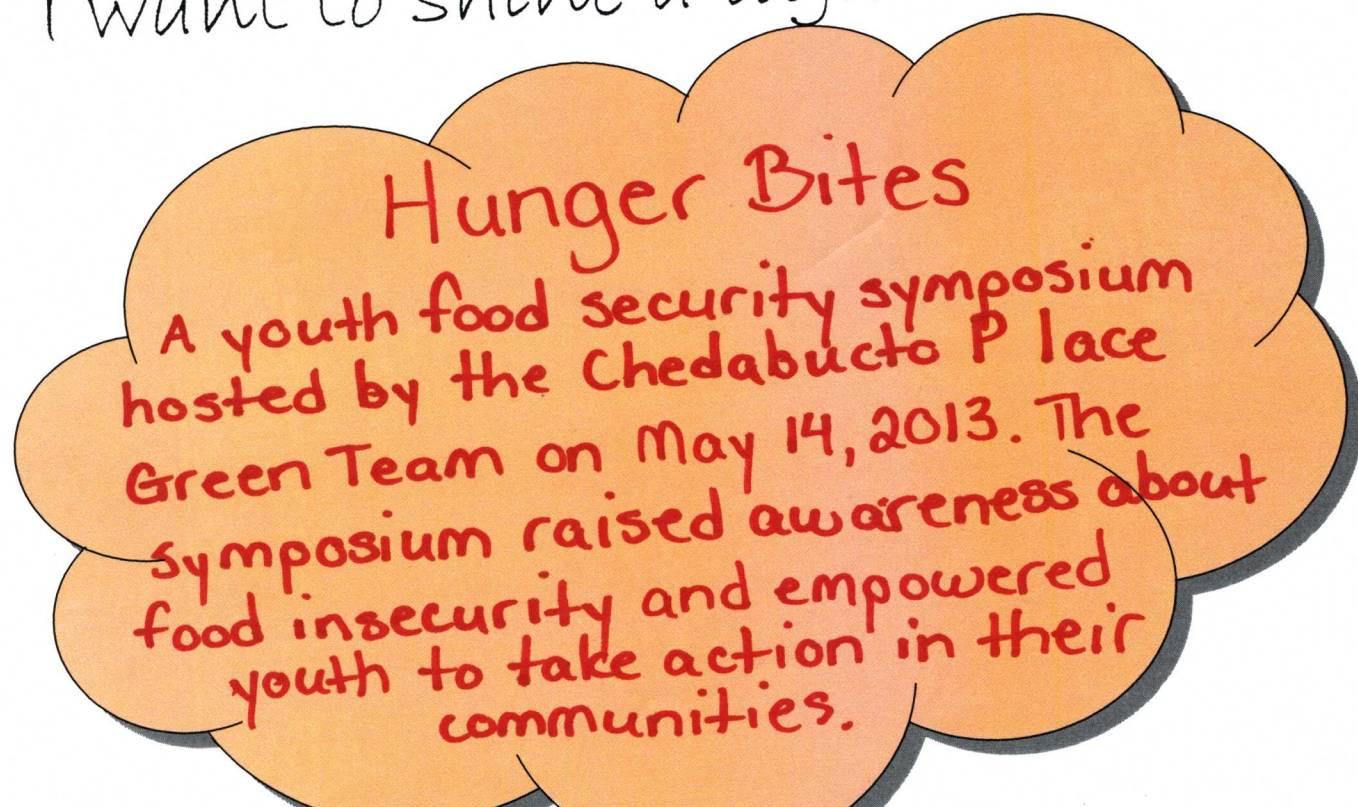 I want to shine a
Hunger Bites
A youth food security symposium
hosted by the Chedabucto Place
Green Team on May 14, 2013. The
symposium raised awareness about
food insecurity and empowered
youth to take action in their
communities.